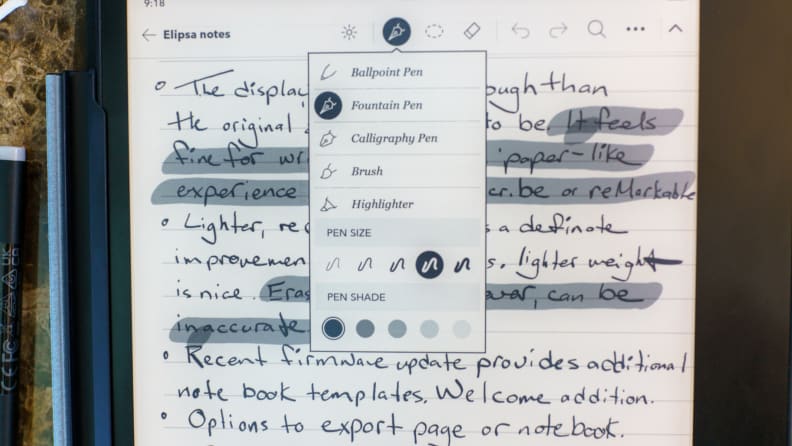 9:18
Elipsa notes
Ballpoint Pen
Fountain Pen
Calligraphy Pen
Brush
Highlighter
PEN SIZE
PEN SHADE
• The display ough than
the original to be. It feels
fine for wr "paper-like
experience or reMarkable
• Lighter, re a definate
improvemen s. lighter weight
is nice. Eras ever, can be
inaccurate
• Recent firmware update provides additional
note book templates. Welcome addition.
• Options to export page or notebook.